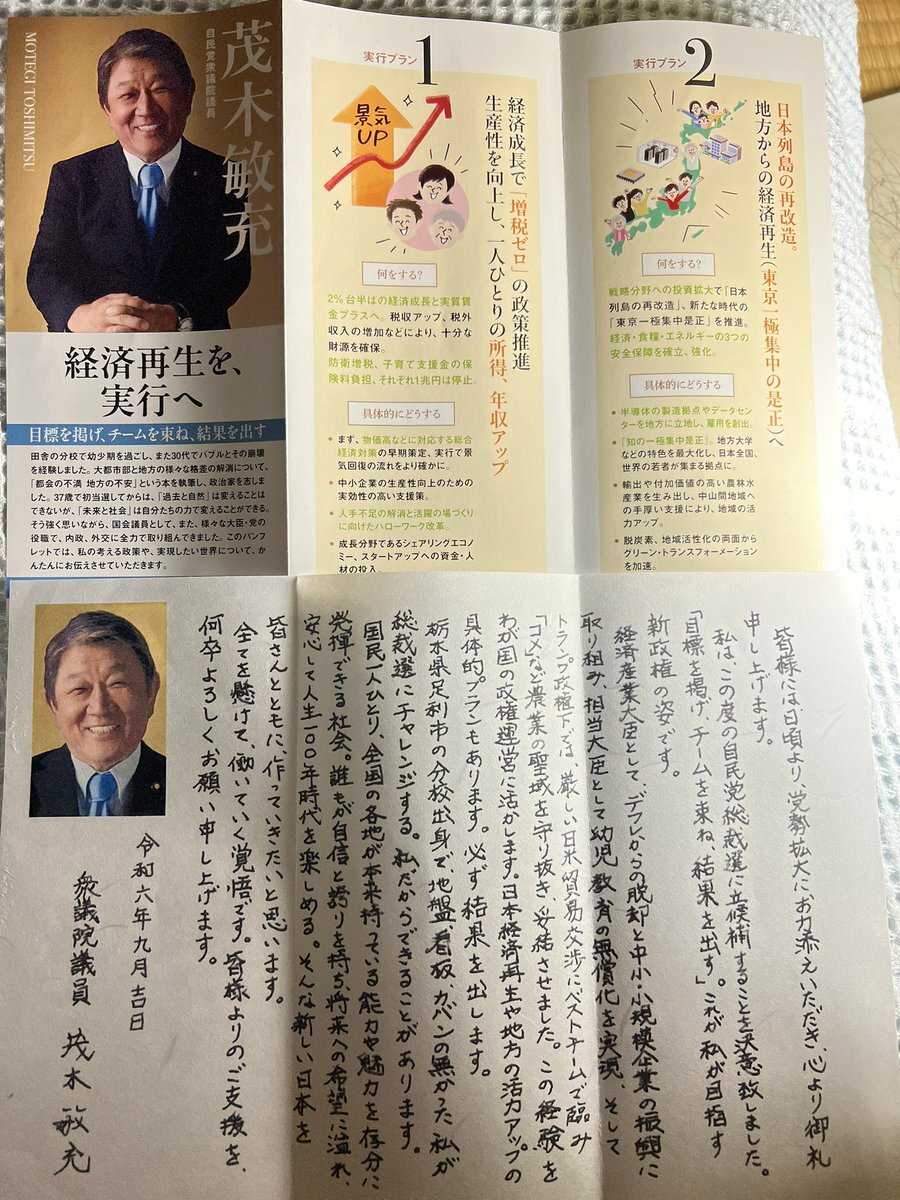 茂木敏充
自民党衆議院議員
MOTEGI TOSHIMITSU
経済再生を、
実行へ
目標を掲げ、チームを束ね、結果を出す
田舎の分校で幼少期を過ごし、また30代でバブルとその崩
壊を経験しました。大都市部と地方の様々な格差の解消について、
「都会の不満 地方の不安」という本を執筆し、政治家を志しま
した。37歳で初当選してからは、「過去と自然」は変えることは
できないが、「未来と社会」は自分たちの力で変えることができる。
そう強く思いながら、国会議員として、また、様々な大臣・党の
役職で、内政、外交に全力で取り組んできました。このパンフ
レットでは、私の考える政策や、実現したい世界について、か
んたんにお伝えさせていただきます。
実行プラン 1
景気
UP
経済成長で「増税ゼロ」の政策推進
生産性を向上し、一人ひとりの所得、年収アップ
何をする?
2%台半ばの経済成長と実質賃
金プラスへ。税収アップ、税外
収入の増加などにより、十分な
財源を確保。
防衛増税、子育て支援金の保
険料負担、それぞれ1兆円は停止。
具体的にどうする
• まず、物価高などに対応する総合
経済対策の早期策定、実行で景
気回復の流れをより確かに。
• 中小企業の生産性向上のための
実効性の高い支援策。
• 人手不足の解消と活躍の場づくり
に向けたハローワーク改革。
• 成長分野であるシェアリングエコノ
ミー、スタートアップへの資金・人
材の投入。
実行プラン 2
日本列島の再改造。
地方からの経済再生(東京一極集中の是正)へ
何をする?
戦略分野への投資拡大で「日本
列島の再改造」、新たな時代の
「東京一極集中是正」を推進。
経済・食糧・エネルギーの3つの
安全保障を確立、強化。
具体的にどうする
• 半導体の製造拠点やデータセン
ターを地方に立地し、雇用を創出。
• 「知の一極集中是正」。地方大学
などの特色を最大化し、日本全国、
世界の若者が集まる拠点に。
• 輸出や付加価値の高い農林水
産業を生み出し、中山間地域へ
の手厚い支援により、地域の活
力アップ。
• 脱炭素、地域活性化の両面から
グリーン・トランスフォーメーション
を加速。
皆様には、日頃より、党勢拡大にお力添えいただき、心より御礼
申し上げます。
私は、この度の自民党総裁選に立候補することを決意致しました。
「目標を掲げ、チームを束ね、結果を出す」。これが私が目指す
新政権の姿です。
経済産業大臣として、デフレからの脱却と中小・小規模企業の振興に
取り組み、担当大臣として幼児教育の無償化を実現、そして
トランプ政権下では、厳しい日米貿易交渉にベストチームで臨み
「コメ」など農業の聖域を守り抜き、妥結させました。この経験を
わが国の政権運営に活かします。日本経済再生や地方の活力アップの
具体的プランもあります。必ず結果を出します。
栃木県足利市の分校出身で、地盤、看板、カバンの無かった私が
総裁選にチャレンジする。私だからできることがあります。
国民一人ひとり、全国の各地が本来持っている能力や魅力を存分に
発揮できる社会。誰もが自信と誇りを持ち、将来への希望に溢れ、
安心して人生一〇〇年時代を楽しめる。そんな新しい日本を
皆さんとともに、作っていきたいと思います。
全てを懸けて、働いていく覚悟です。皆様よりのご支援を、
何卒よろしくお願い申し上げます。
令和六年九月吉日
衆議院議員 茂木敏充